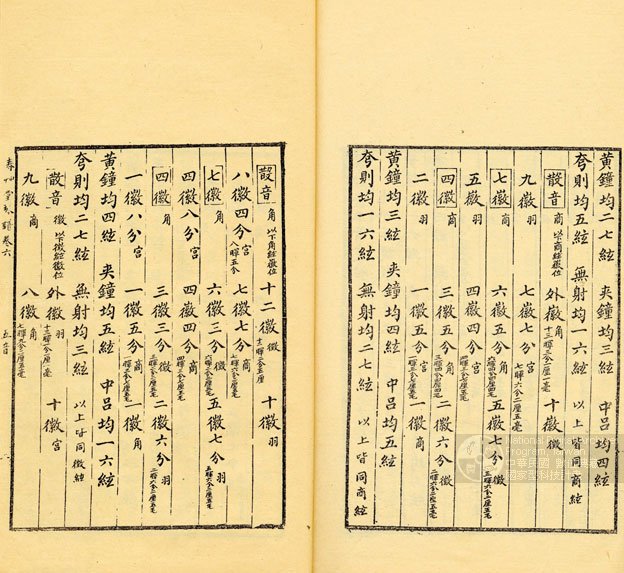 黃鐘均二七絃 夾鐘均三絃 中呂均四絃
夸則均五絃 無射均一六絃 以上皆同商絃
散音商以下商絃徽位 外徽角十三暉三分二厘一毫 十徽徵
九徽羽 七徽七分宮七暉六分二厘五毫
七徽商 六徽五分角 五徽七分徵
五徽羽 四徽四分宮
四徽商 三徽五分角 二徽六分徵
二徽羽 一徽五分宮 一徽商
黃鐘均三絃 夾鐘均四絃 中呂均五絃
夸則均一六絃 無射均二七絃 以上皆同商絃
散音角以下角絃徽位 十二徽徵 十徽羽
八徽四分宮八暉五分 七徽七分商
七徽角 六徽三分徵 五徽七分羽
四徽八分宮 四徽四分商
四徽角 三徽三分徵 二徽六分羽
一徽八分宮 一徽五分商 一徽角
黃鐘均四絃 夾鐘均五絃 中呂均一六絃
夸則均二七絃 無射均三絃 以上皆同徵絃
散音徵以下徵絃徽位 外徽羽十三暉二分一厘一毫 十徽宮
九徽商 八徽角七暉九分二厘五毫
堂琴譜卷六
五音
National
Program, Taiwan
中華民國 數位
國家型科技計